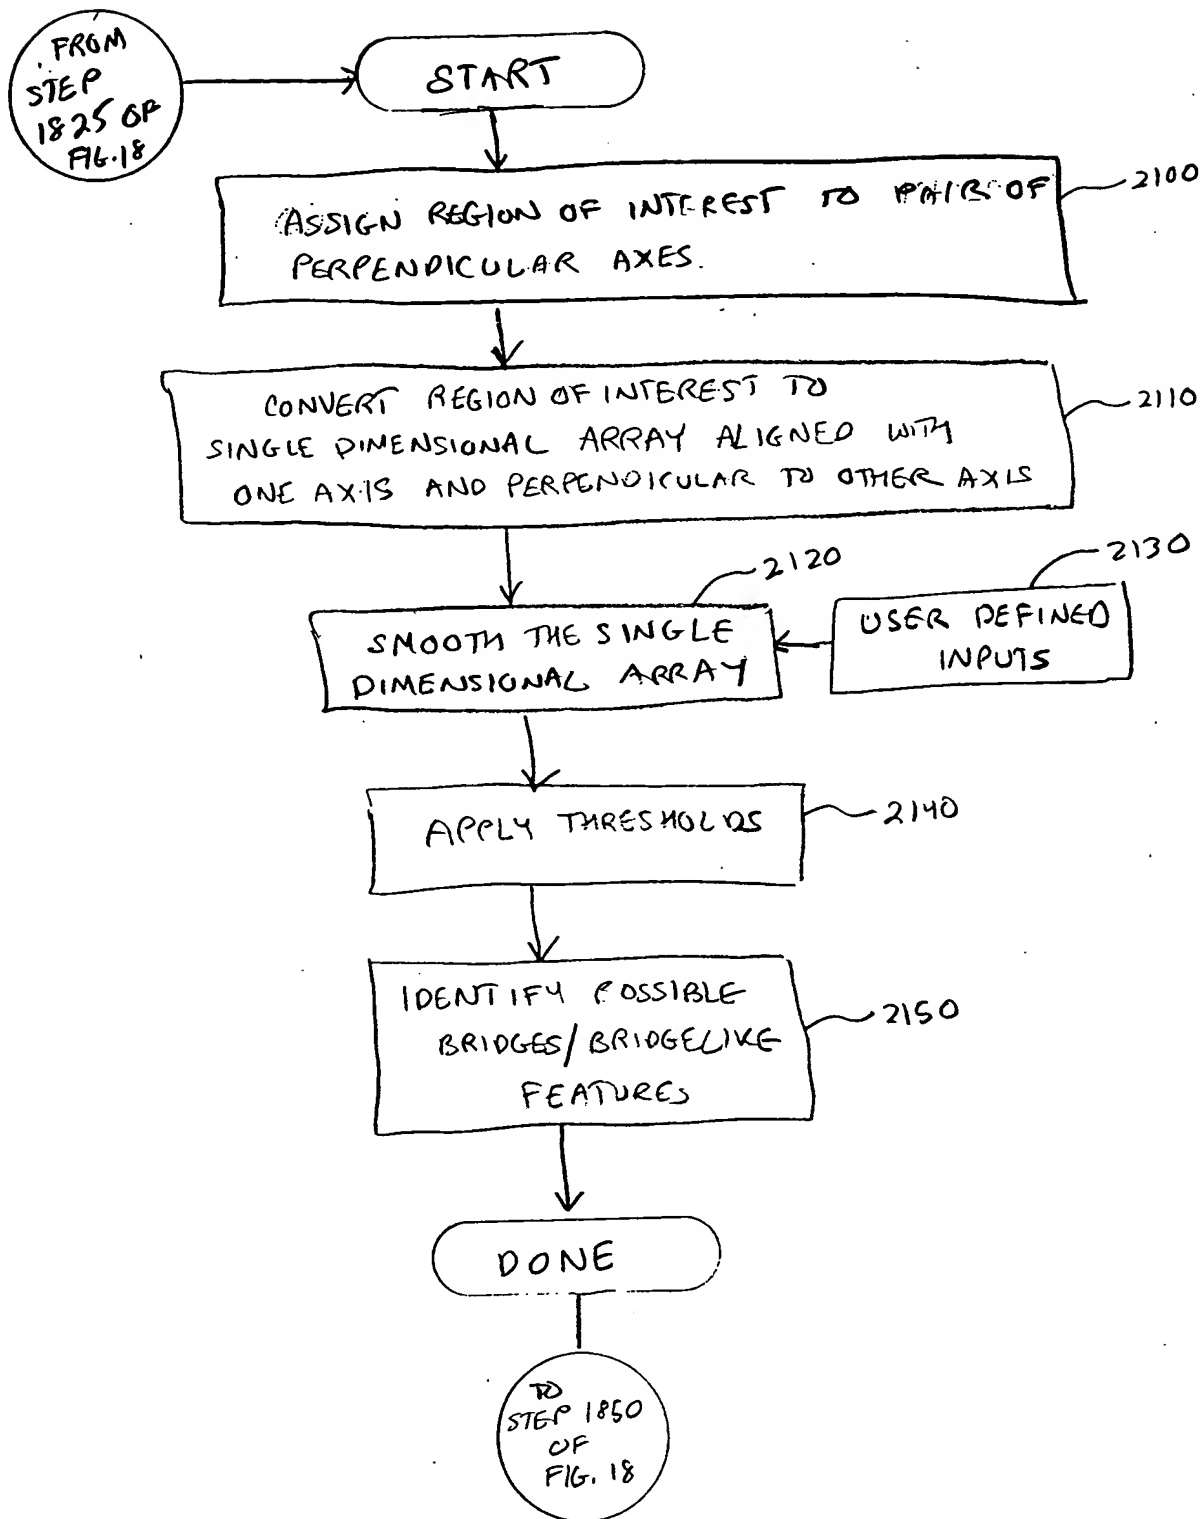 FROM
STEP
1825 OF
FIG.18
START
2100
ASSIGN REGION OF INTEREST TO PAIR OF
PERPENDICULAR AXES.
2110
CONVERT REGION OF INTEREST TO
SINGLE DIMENSIONAL ARRAY ALIGNED WITH
ONE AXIS AND PERPENDICULAR TO OTHER AXIS
2120
2130
SMOOTH THE SINGLE
DIMENSIONAL ARRAY
USER DEFINED
INPUTS
APPLY THRESHOLDS
2140
IDENTIFY POSSIBLE
BRIDGES/BRIDGELIKE
FEATURES
2150
DONE
TO
STEP 1850
OF
FIG. 18